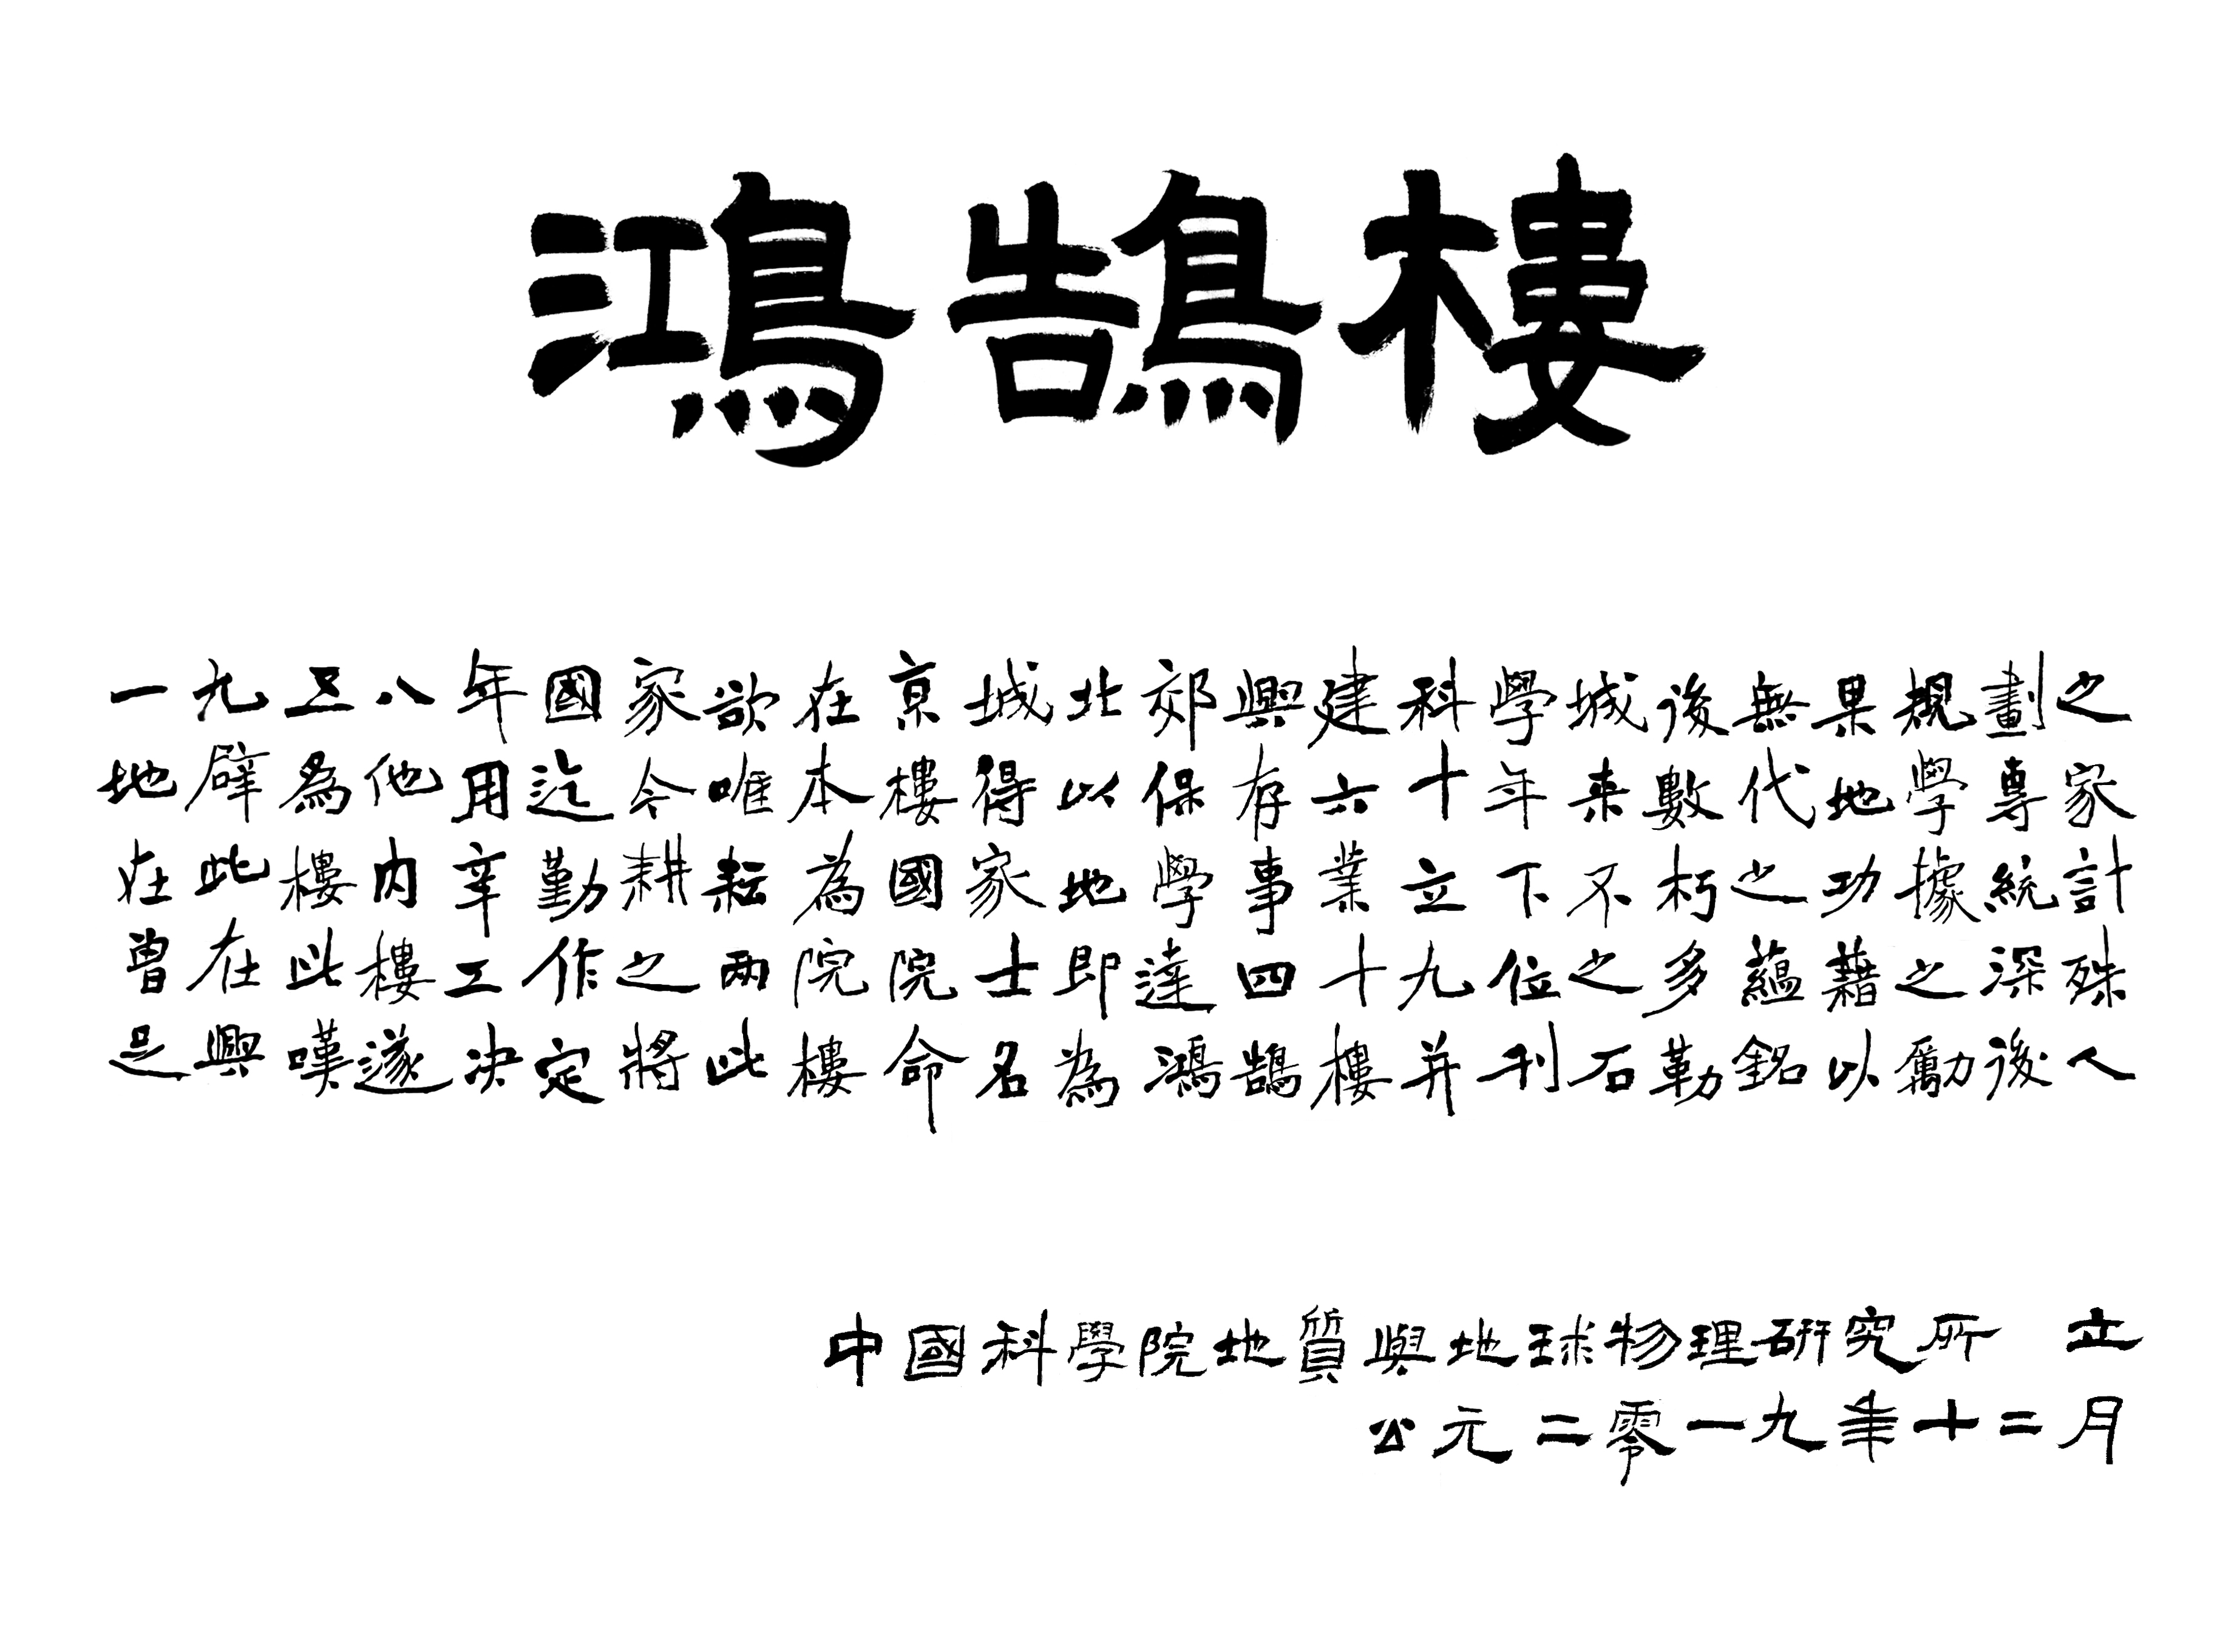 鴻鵠樓
一九五八年國家欲在京城北郊興建科學城後無果規劃之
地辟為他用迄今唯本樓得以保存六十年来數代地學專家
在此樓内辛勤耕耘為國家地學事業立下不朽之功據統計
曾在此樓工作之两院院士即達四十九位之多蘊藉之深殊
足興嘆遂决定將此樓命名為鴻鵠樓并刊石勒銘以勵後人
中國科學院地質與地球物理研究所 立
公元二零一九年十二月